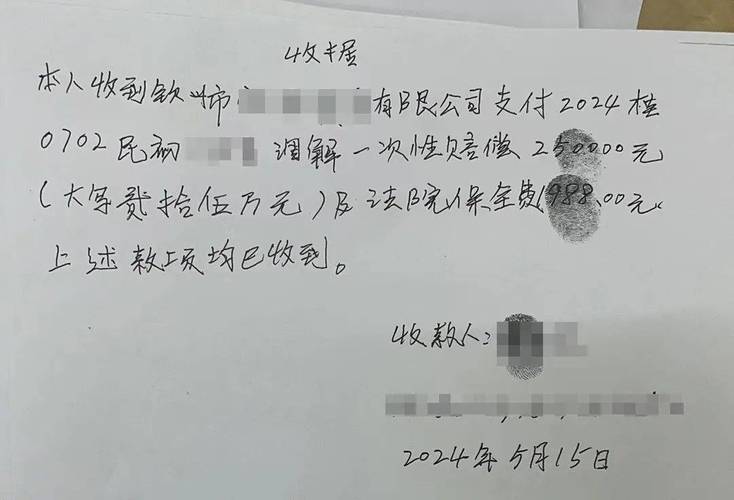 收据
本人收到钦州市 有限公司支付2024桂
0702民初 调解一次性赔偿250000元
(大写贰拾伍万元)及法院保全费1988.00元.
上述款项均已收到。
收款人:
2024年5月15日